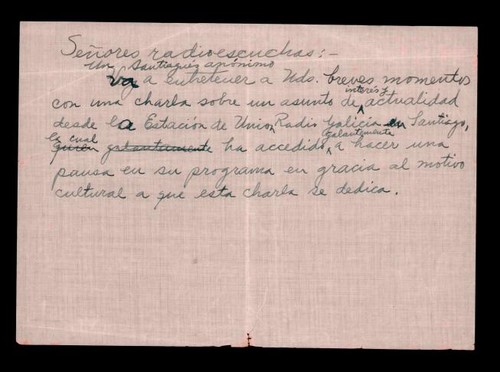 Señores radioescuchas:-
Un Santiagués anónimo
Va a entretener a Uds. breves momentos
interés y
con una charla sobre un asunto de actualidad
desde la Estación de Union Radio Galicia en Santiago,
la cual galantemente
quien galantemente ha accedido a hacer una
pausa en su programa en gracia al motivo
cultural a que esta charla se dedica.